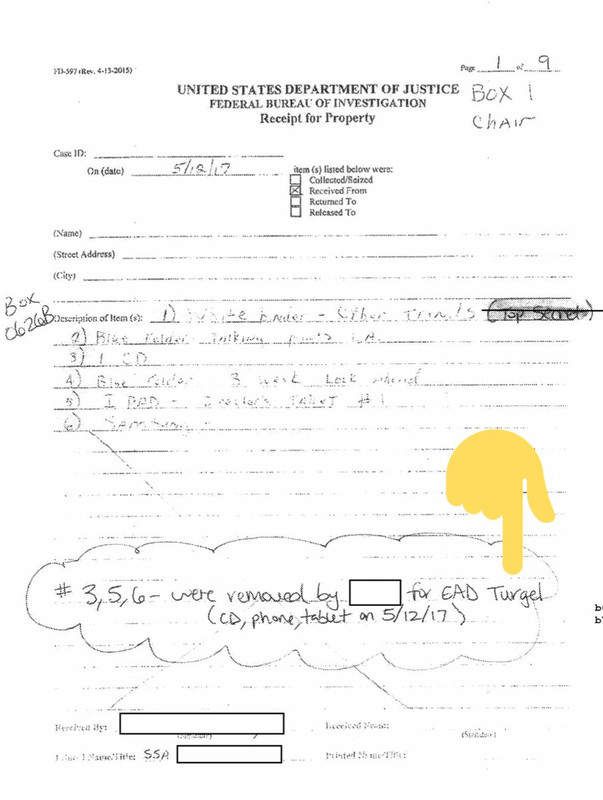 FD-597 (Rev. 4-13-2015)
Page 1 of 9
UNITED STATES DEPARTMENT OF JUSTICE
FEDERAL BUREAU OF INVESTIGATION
Receipt for Property
Box 1
Chair
Case ID:
On (date) 5/12/17
item (s) listed below were:
Collected/Seized
Received From
Returned To
Released To
(Name)
(Street Address)
(City)
Box
0626B
Description of Item (s): 1) White binder - Other (Top Secret)
2) Blue Folder
3) 1 CD
4) Blue Folder 3 week Look
5) I PAD - Director's Tablet #1
6) Samsung -
# 3,5,6 - were removed by for EAD Turgel
(CD, phone, tablet on 5/12/17)
Received By:
Received From:
(Signature)
Printed Name/Title: SSA
Printed Name/Title: